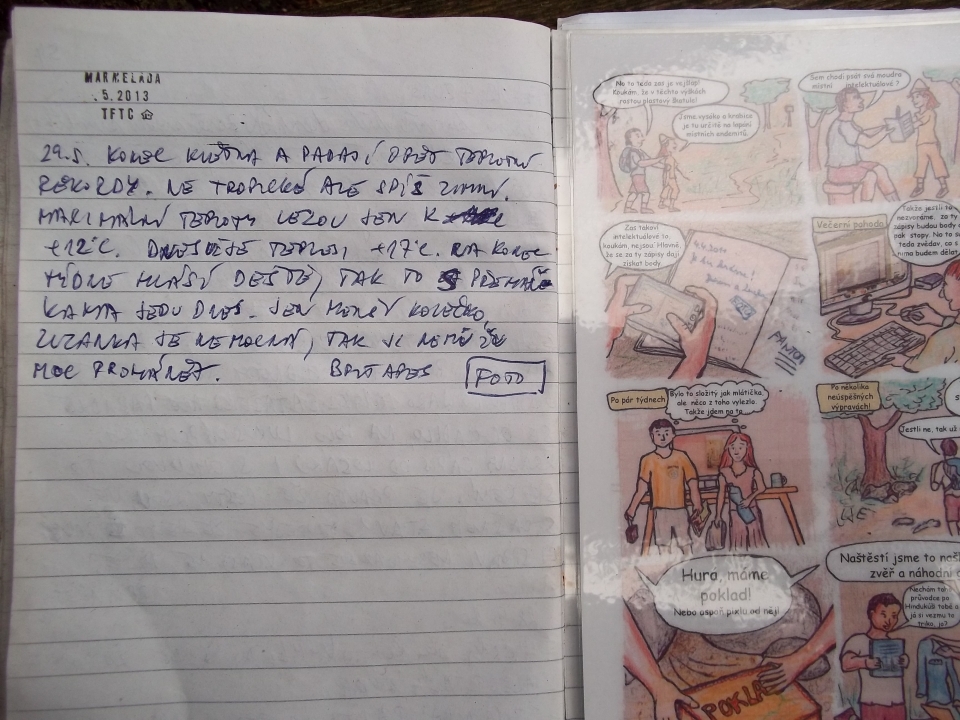 MARMELADA
. 5. 2013
TFTC
29.5. KONEC KVĚTNA A PADAJÍ OPĚT TEPLOTNÍ
REKORDY. NE TROPICKÉ ALE SPÍŠ ZIMNÍ.
MAXIMÁLNÍ TEPLOTY LEZOU JEN K
+12°C. DNES JE TEPLO, +17°C. NA KONEC
TÝDNE HLÁSÍ DEŠTĚ, TAK TO
KAMA JEDU DNES. JEN MENŠÍ KOLEČKO,
ZUZANKA JE NEMOCNÁ, TAK JI NEMŮŽU
MOC PROHÁNĚT. BPLT APES FOTO
No to teda zas je nejlíp!
Koukám, že v těchto výškách
rostou plastový škatule!
Jsme vysoko a krabice
je tu určitě na lapání
místních endemitů.
Sem chodí psát svá moudra
místní intelektuálové?
Zas takoví
intelektuálové to,
koukám, nejsou. Hlavně,
že se za ty zápisy dají
získat body.
4.4.2011
PANTER
Večerní pohoda
Takže jestli to
nezvoráme, za ty
zápisy budou body a
pak stopy. No to s
teda zvědav, co s
tima budem dělat
Po pár týdnech
Bylo to složitý jak mlátička,
ale něco z toho vylezlo.
Takže jdem na to
Po několika
neúspěšných
výpravách!
Jestli ne, tak už
Hurá, máme
poklad!
Nebo aspoň pixlu od něj!
POKLA
Naštěstí jsme to naš
zvěř a náhodní
Nechám tai
průvodce po
Hindúkúši tobě a
já si vezmu to
triko, jo?